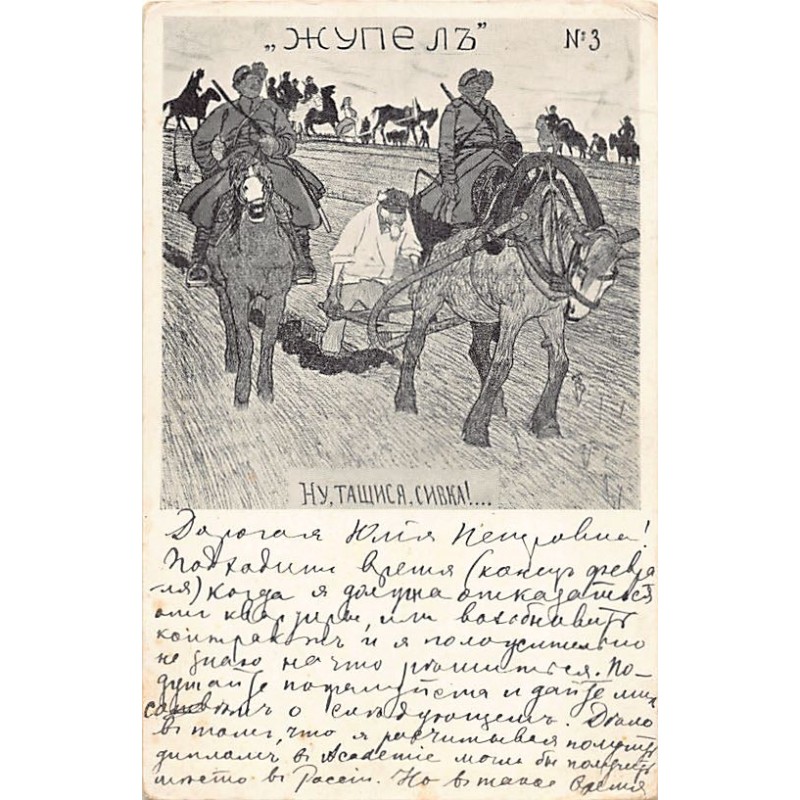 „ЖУПЕЛЪ” №3
НУ, ТАЩИСЯ, СИВКА!....
Дорогая Юлія Петровна!
Подходитъ время (конецъ февра-
ля) когда я должна отказаться
отъ квартиры, или возобновить
контрактъ и я положительно
не знаю на что рѣшиться. По-
думайте пожалуйста и дайте мнѣ
совѣтъ о слѣдующемъ. Дѣло
въ томъ, что я расчитывая получить
дипламъ въ Academie могла бы получить
мѣсто въ Россіи. Но въ такое время